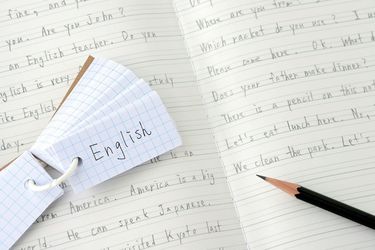 fine, and
you. Are you John?
an English teacher. Do you
English is very
study
like English
day.
is an
from America. America is a big
world. He can speak Japanese.
visited Kyoto last
English
Where are you from?
Which racket do you use? I
Please come here. Ok. What
Does your father make dinner?
There is a pencil on this
Let's eat lunch here. No,
We clean the park. Let's